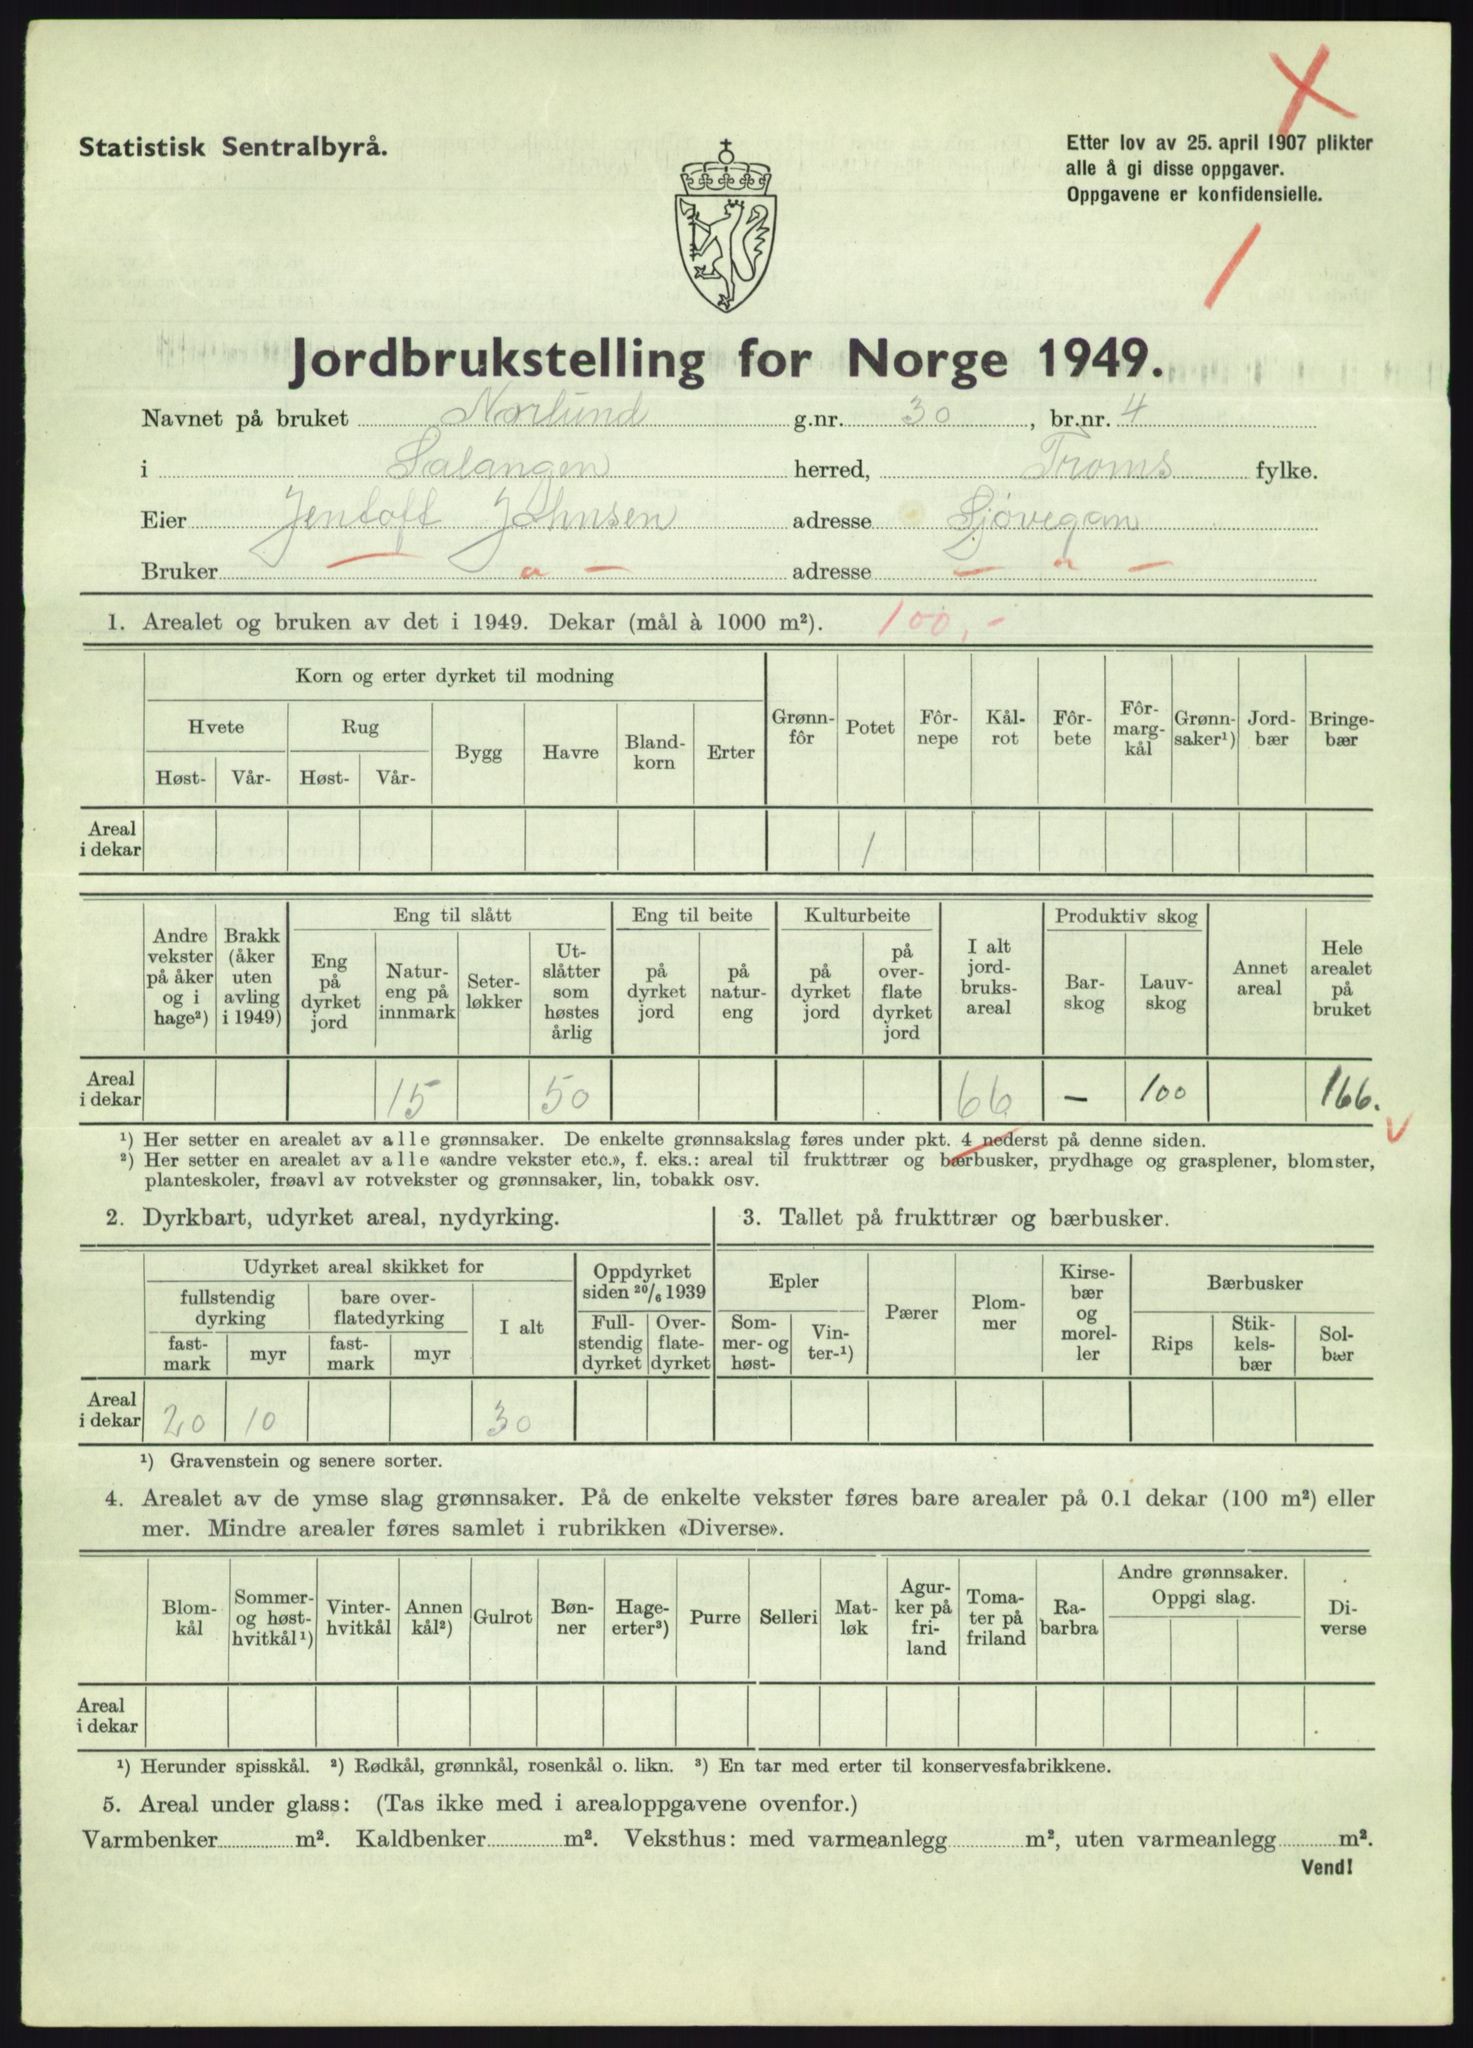 Statistisk Sentralbyrå.
Etter lov av 25. april 1907 plikter
alle å gi disse oppgaver.
Oppgavene er konfidensielle.
Jordbrukstelling for Norge 1949.
Navnet på bruket Norlund g.nr. 30, br.nr. 4
i Salangen herred, Troms fylke.
Eier Jentoft Johnsen adresse Sjøvegan
Bruker — " — adresse — " —
1. Arealet og bruken av det i 1949. Dekar (mål à 1000 m²). 100,-
Korn og erter dyrket til modning
Hvete Rug Bygg Havre Bland-korn Erter Grønn-fôr Potet Fôr-nepe Kål-rot Fôr-bete Fôr-marg-kål Grønn-saker¹) Jord-bær Bringe-bær
Høst- Vår- Høst- Vår-
Areal i dekar 1
Eng til slått Eng til beite Kulturbeite Produktiv skog
Andre vekster på åker og i hage²) Brakk (åker uten avling i 1949) Eng på dyrket jord Natur-eng på innmark Seter-løkker Ut-slåtter som høstes årlig på dyrket jord på natur-eng på dyrket jord på over-flate dyrket jord I alt jord-bruks-areal Bar-skog Lauv-skog Annet areal Hele arealet på bruket
Areal i dekar 15 50 66 – 100 166.
¹) Her setter en arealet av alle grønnsaker. De enkelte grønnsakslag føres under pkt. 4 nederst på denne siden.
²) Her setter en arealet av alle «andre vekster etc.», f. eks.: areal til frukttrær og bærbusker, prydhage og grasplener, blomster,
planteskoler, frøavl av rotvekster og grønnsaker, lin, tobakk osv.
2. Dyrkbart, udyrket areal, nydyrking.
Udyrket areal skikket for Oppdyrket siden 20/6 1939
fullstendig dyrking bare over-flatedyrking I alt Full-stendig dyrket Over-flate-dyrket
fast-mark myr fast-mark myr
Areal i dekar 20 10 30
3. Tallet på frukttrær og bærbusker.
Epler Pærer Plom-mer Kirse-bær og morel-ler Bærbusker
Som-mer- og høst- Vin-ter-¹) Rips Stik-kels-bær Sol-bær
¹) Gravenstein og senere sorter.
4. Arealet av de ymse slag grønnsaker. På de enkelte vekster føres bare arealer på 0.1 dekar (100 m²) eller
mer. Mindre arealer føres samlet i rubrikken «Diverse».
Blom-kål Sommer- og høst-hvitkål¹) Vinter-hvitkål Annen kål²) Gulrot Bøn-ner Hage-erter³) Purre Selleri Mat-løk Agur-ker på fri-land Toma-ter på friland Ra-barbra Andre grønnsaker. Oppgi slag. Di-verse
Areal i dekar
¹) Herunder spisskål. ²) Rødkål, grønnkål, rosenkål o. likn. ³) En tar med erter til konservesfabrikkene.
5. Areal under glass: (Tas ikke med i arealoppgavene ovenfor.)
Varmbenker m². Kaldbenker m². Veksthus: med varmeanlegg m², uten varmeanlegg m².
Vend!